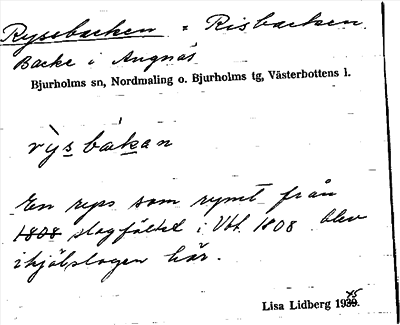 Ryssbacken = Risbacken.
Backe i Angnäs
Bjurholms sn, Nordmaling o. Bjurholms tg, Västerbottens l.
rỳs bàkan
En ryss som rymt från
1808 slagfältet i Vbt. 1808 blev
ihjälslagen här.
Lisa Lidberg 1945.